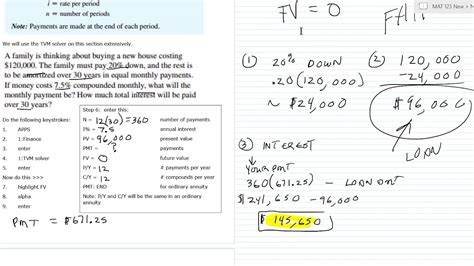 i = rate per period
n = number of periods
Note: Payments are made at the end of each period.
We will use the TVM solver on this section extensively.
A family is thinking about buying a new house costing
$120,000. The family must pay 20% down, and the rest is
to be amortized over 30 years in equal monthly payments.
If money costs 7.5% compounded monthly, what will the
monthly payment be? How much total interest will be paid
over 30 years?
Do the following keystrokes:
1. APPS
2. 1:Finance
3. enter
4. 1:TVM solver
5. enter
Now do this >>>
7. highlight FV
8. alpha
9. enter
Step 6: enter this:
N = 12(30)=360 number of payments
I% = 7.5 annual interest
PV = 96,000 present value
PMT = ? payment
FV = 0 future value
P/Y = 12 # payments per year
C/Y = 12 # compounds per year
PMT: END for ordinary annuity
Note: P/Y and C/Y will be the same in an ordinary
annuity
PMT = $671.25
FV = 0
MAT 123 New > M
(1) 20% DOWN
.20(120,000)
= $24,000
(2) 120,000
-24,000
$96,000
LOAN
(3) INTEREST
YOUR PMT
360(671.25) - LOAN AMT
$241,650 - 96,000
$145,650